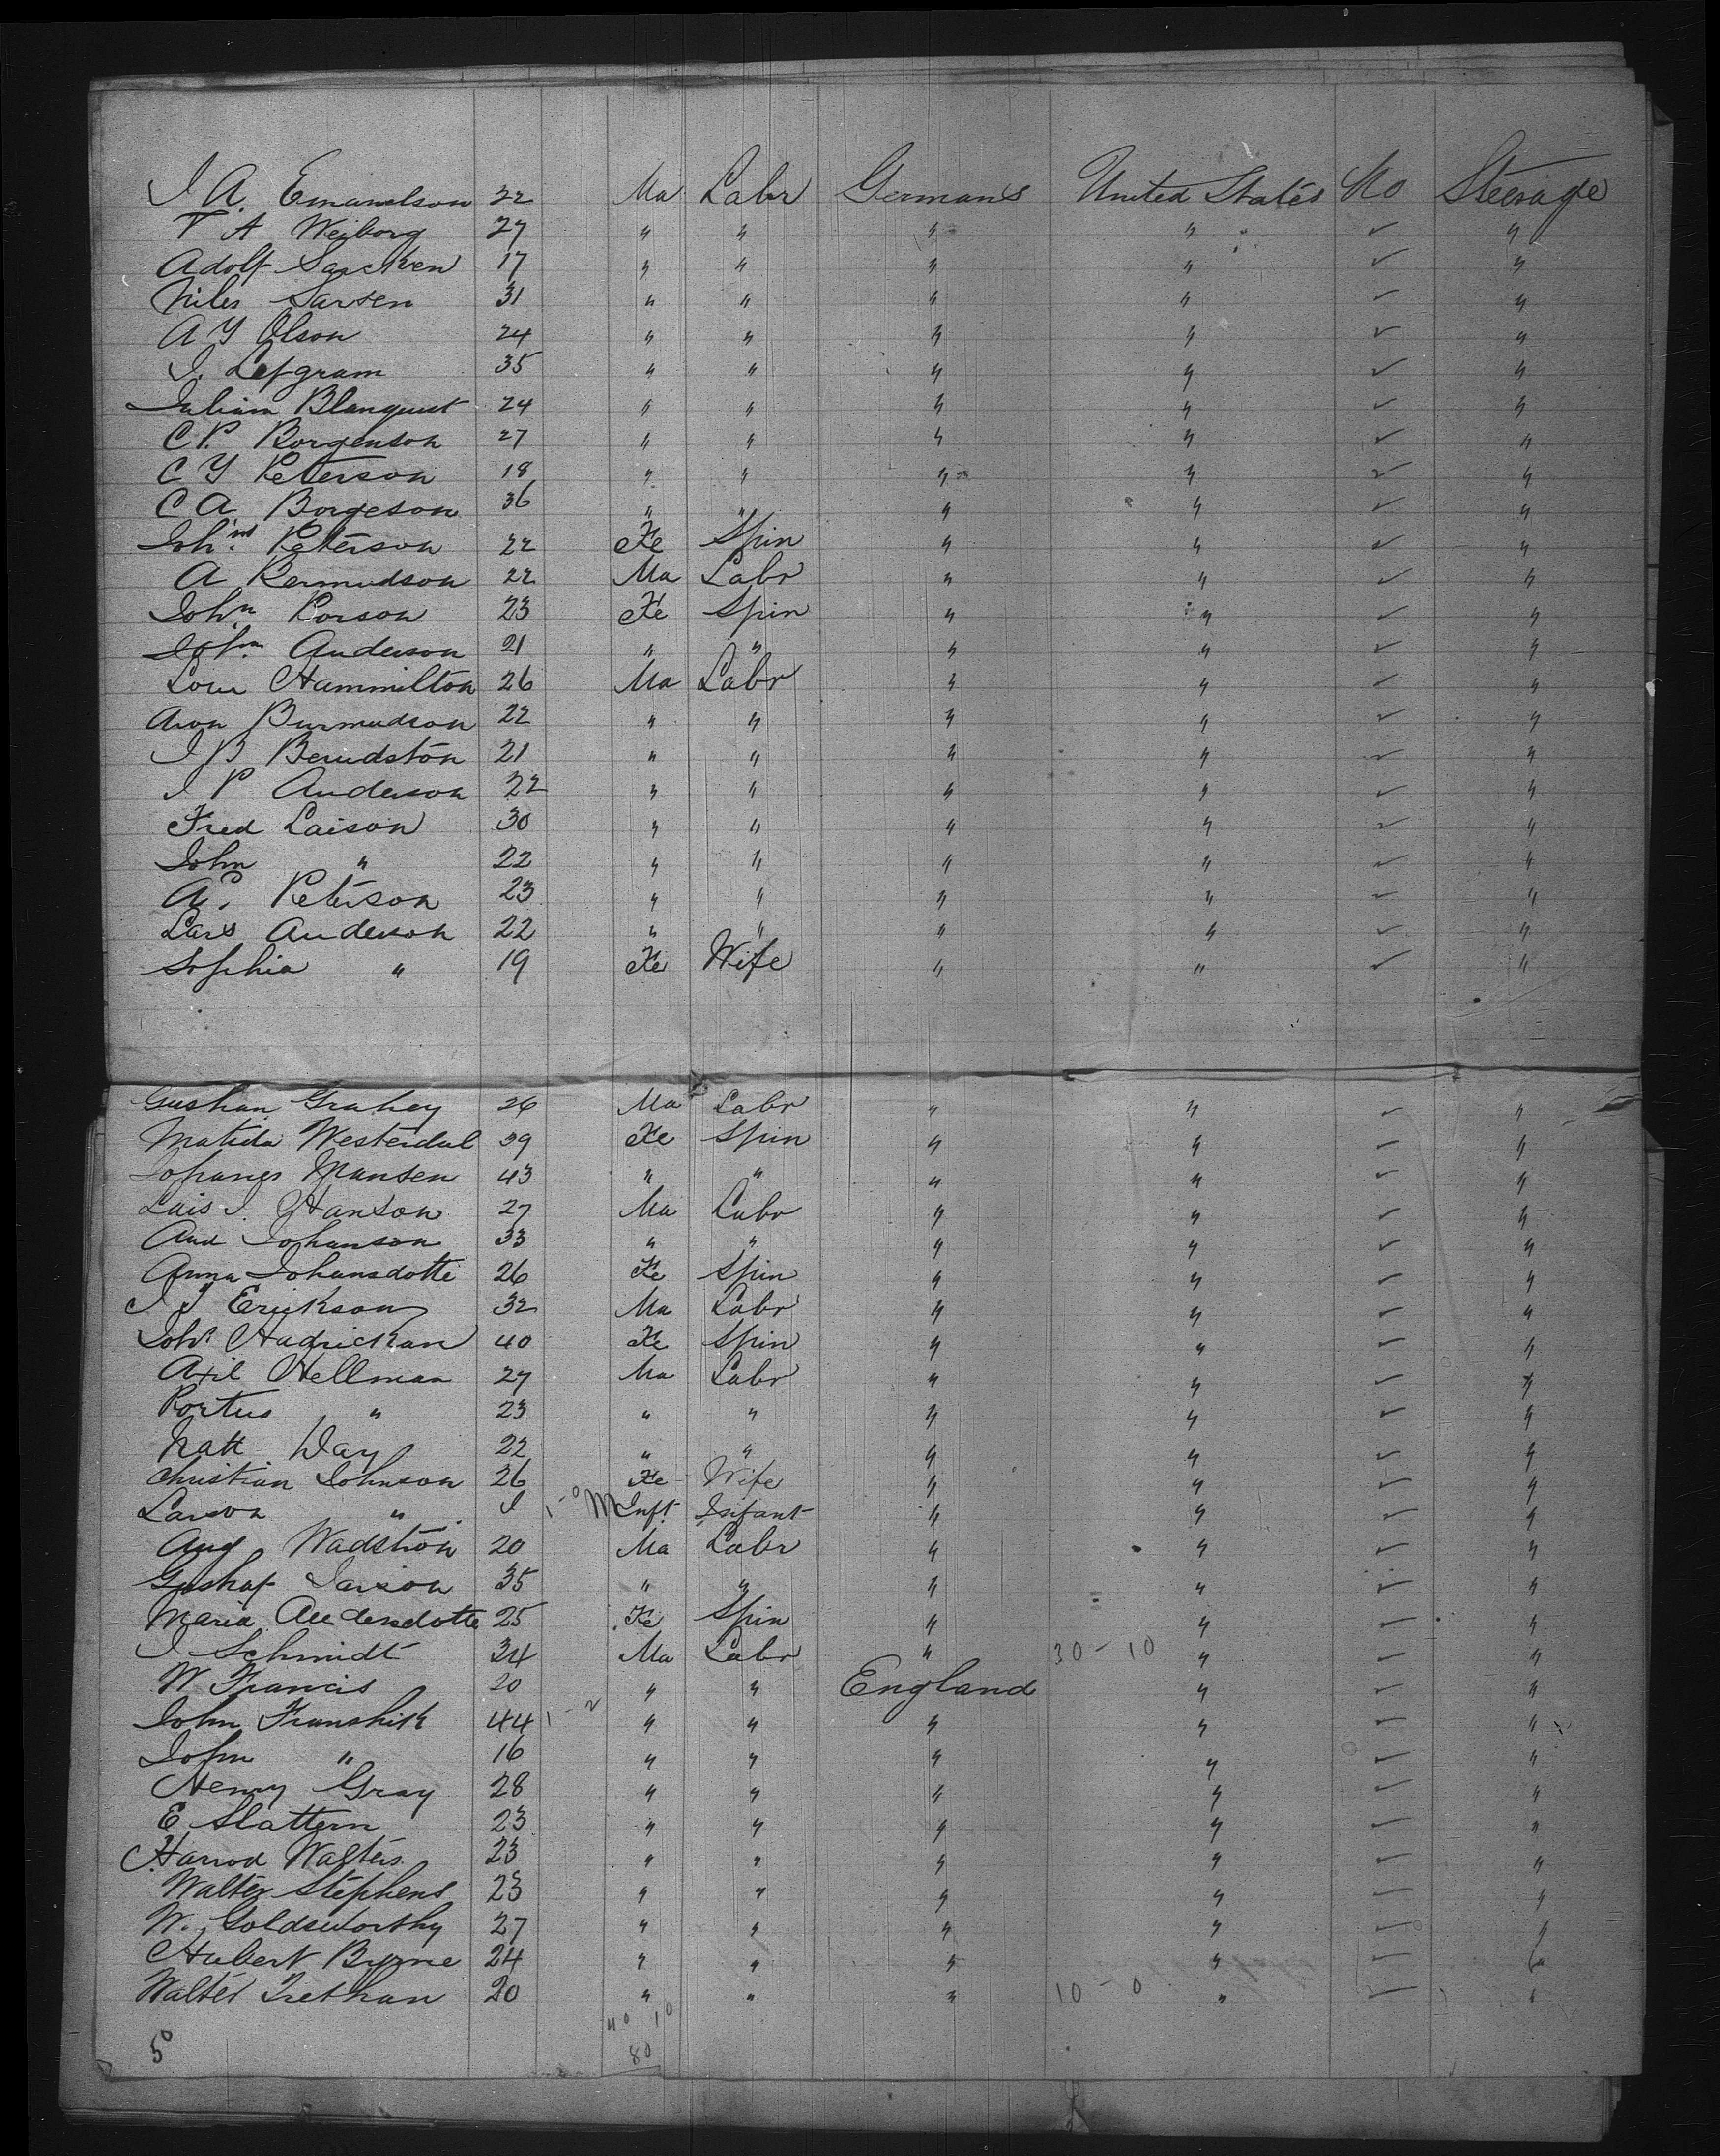 I A. Emanelson 22 Ma Labr Germans United States No Steerage
T A Weiborg 27 " " " " ✓ "
Adolf Sacken 17 " " " " ✓ "
Niles Larsen 31 " " " " ✓ "
A Y Olson 24 " " " " ✓ "
I. Lefgram 35 " " " " ✓ "
Blanquist 24 " " " " ✓ "
C P. Borgenson 27 " " " " ✓ "
C Y Peterson 18 " " " " ✓ "
C A Borgeson 36 " " " " ✓ "
Peterson 22 Fe Spin " " ✓ "
A Bermudson 22 Ma Labr " " ✓ "
Joh.n Porson 23 Fe Spin " " ✓ "
Joh.n Anderson 21 " " " " ✓ "
Hammilton 26 Ma Labr " " ✓ "
Aron Burmudson 22 " " " " ✓ "
I B Berndston 21 " " " " ✓ "
I P Anderson 22 " " " " ✓ "
Fred Laison 30 " " " " ✓ "
John " 22 " " " " ✓ "
A. Peterson 23 " " " " ✓ "
Lars Anderson 22 " " " " ✓ "
Sophia " 19 Fe Wife " " ✓ "
Grahey 26 Ma Labr " " ✓ "
Matilda Westerdal 39 Fe Spin " " ✓ "
Johanes Mansen 43 " " " " ✓ "
Lais I. Hanson 27 Ma Labr " " ✓ "
And Johanson 33 " " " " ✓ "
Anna Johansdotte 26 Fe Spin " " ✓ "
I I Erickson 32 Ma Labr " " ✓ "
Hadrickan 40 Fe Spin " " ✓ "
Axil Hellman 27 Ma Labr " " ✓ "
Portus " 23 " " " " ✓ "
Natt Day 22 " " " " ✓ "
Christian Johnson 26 Fe Wife " " ✓ "
Larson " 1 1-0 M Inft Infant " " ✓ "
Aug Wadstron 20 Ma Labr " " ✓ "
Gushaf Larson 35 " " " " ✓ "
Maria Andersdotte 25 Fe Spin " " ✓ "
I Schmidt 34 Ma Labr " 30-10 " ✓ "
W Francis 20 " " England " ✓ "
John Franshik 44 1-2 " " " " ✓ "
John " 16 " " " " ✓ "
Henry Gray 28 " " " " ✓ "
E Slattern 23 " " " " ✓ "
Harrod Walters 23 " " " " ✓ "
Walter Stephens 23 " " " " ✓ "
W. Goldsworthy 27 " " " " ✓ "
Hubert Byrne 24 " " " " ✓ "
Walter Trethan 20 " " " 10-0 " ✓ "
40 10
50 80